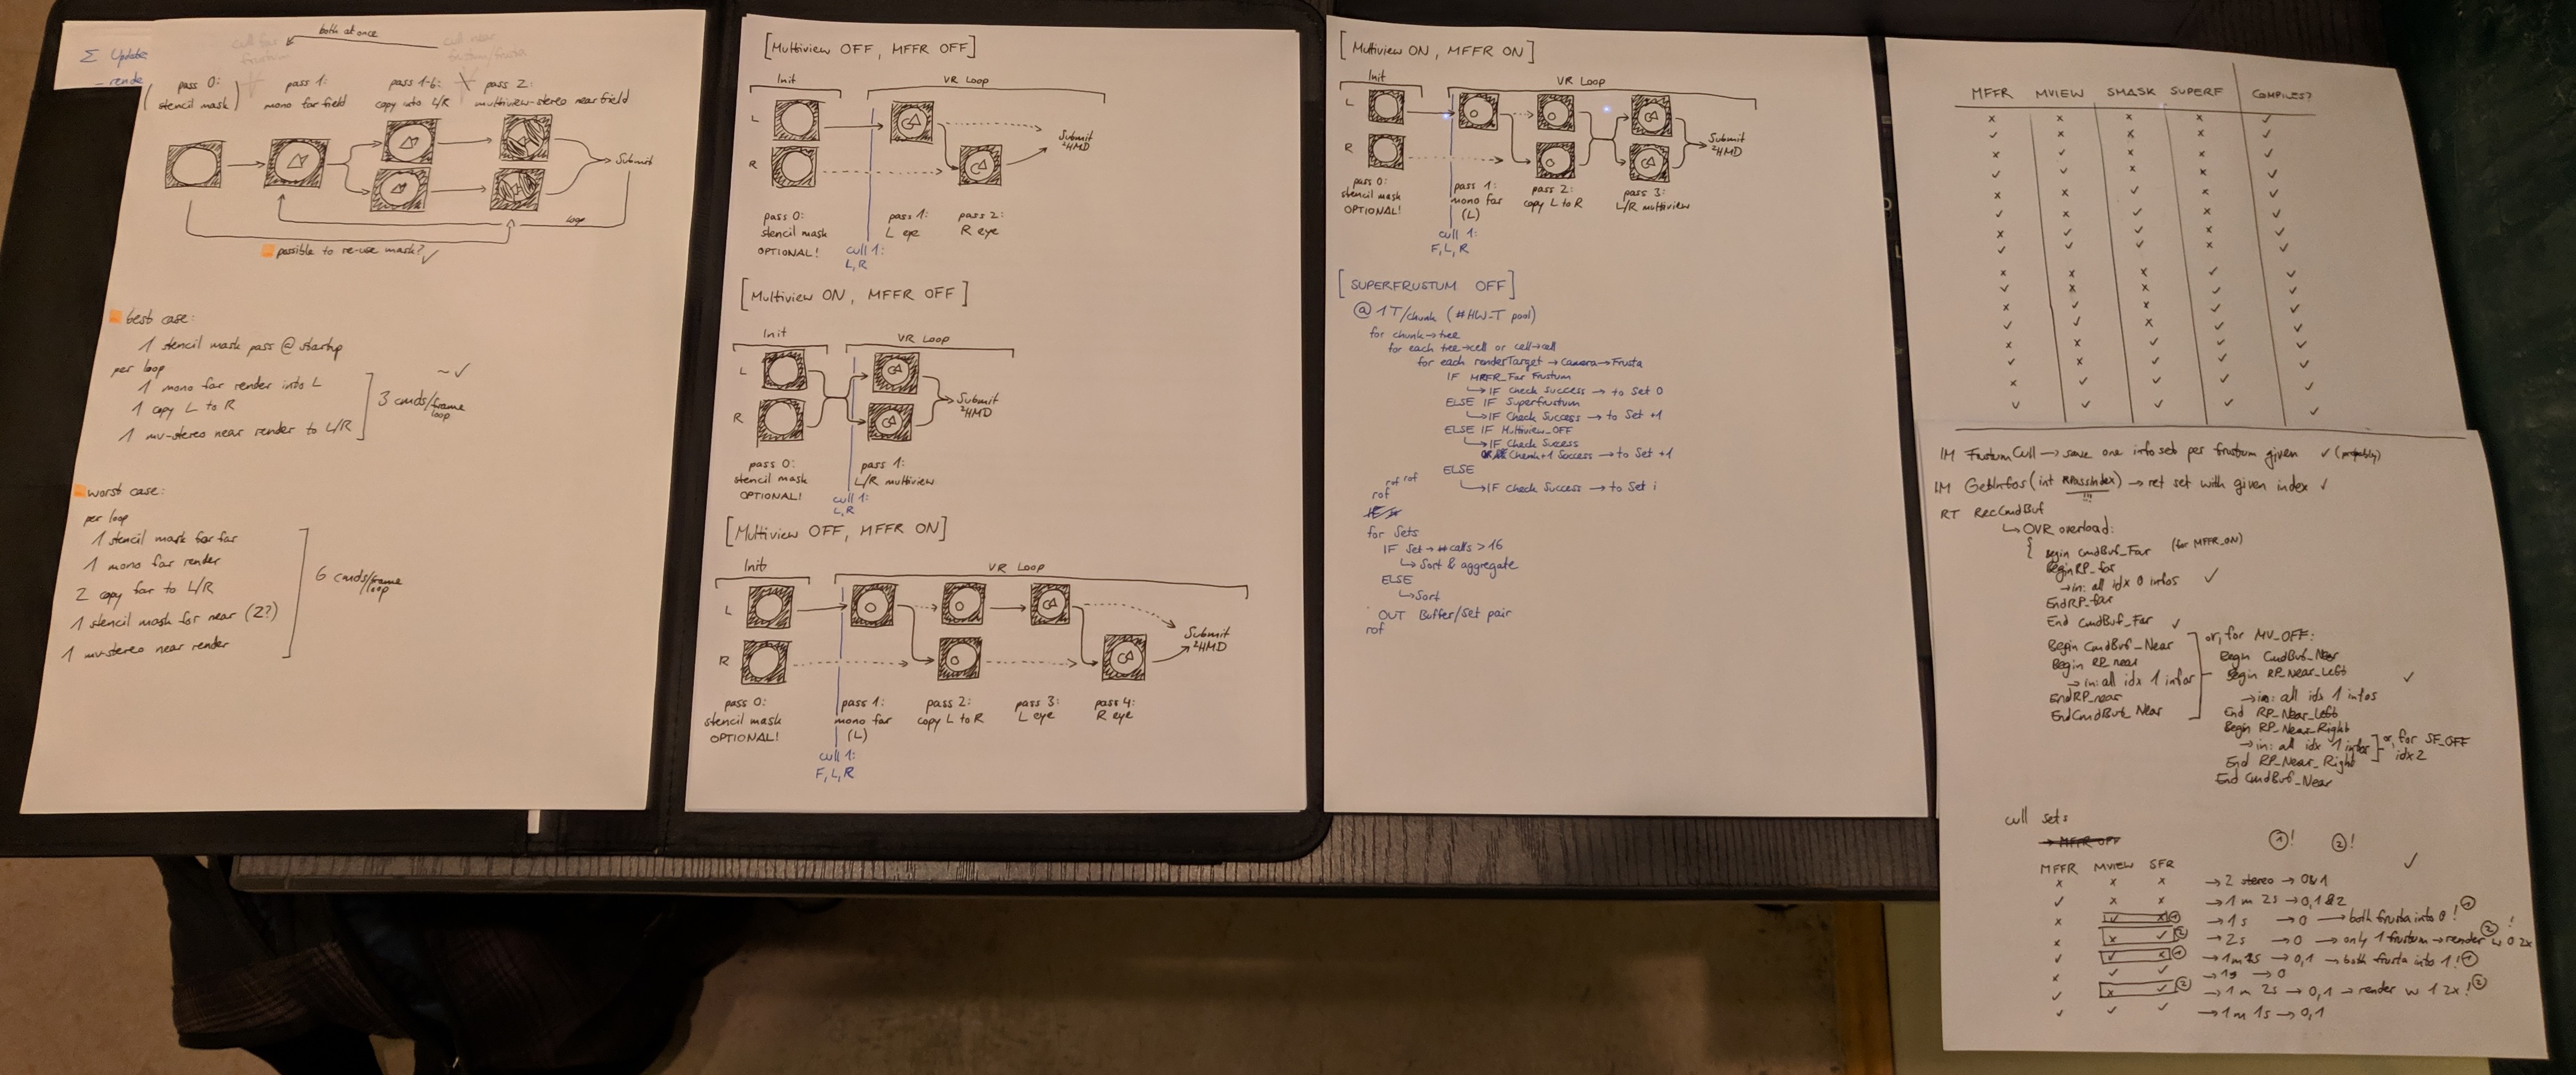 Σ Update
- rende
both at once
cull far
frustum
cull near
frustum/frusta
pass 0:
(stencil mask)
pass 1:
mono far field
pass 1-6:
copy into L/R
pass 2:
multiview-stereo near field
Submit
loop
possible to re-use mask? ✓
best case:
1 stencil mask pass @ startup
per loop
1 mono far render into L
1 copy L to R
1 mv-stereo near render to L/R
~✓
3 cmds/frame
loop
worst case:
per loop
1 stencil mask for far
1 mono far render
2 copy far to L/R
1 stencil mask for near (2?)
1 mv-stereo near render
6 cmds/frame
loop
[Multiview OFF, MFFR OFF]
Init
VR Loop
L
R
Submit
2HMD
pass 0:
stencil mask
OPTIONAL!
pass 1:
L eye
pass 2:
R eye
cull 1:
L, R
[Multiview ON, MFFR OFF]
Init
VR Loop
L
R
Submit
2HMD
pass 0:
stencil mask
OPTIONAL!
pass 1:
L/R multiview
cull 1:
L, R
[Multiview OFF, MFFR ON]
Init
VR Loop
L
R
Submit
2HMD
pass 0:
stencil mask
OPTIONAL!
pass 1:
mono far
(L)
pass 2:
copy L to R
pass 3:
L eye
pass 4:
R eye
cull 1:
F, L, R
[Multiview ON, MFFR ON]
Init
VR Loop
L
R
Submit
2HMD
pass 0:
stencil mask
OPTIONAL!
pass 1:
mono far
(L)
pass 2:
copy L to R
pass 3:
L/R multiview
cull 1:
F, L, R
[SUPERFRUSTUM OFF]
@ 1T/chunk (#HW-T pool)
for chunk→tree
for each tree→cell or cell→cell
for each renderTarget→Camera→Frusta
IF MFFR_Far Frustum
↳IF Check Success → to Set 0
ELSE IF Superfrustum
↳IF Check Success → to Set +1
ELSE IF Multiview_OFF
↳IF Check Success
Check+1 Success → to Set +1
ELSE
↳IF Check Success → to Set i
rof rof
rof
for Sets
IF Set→#calls > 16
↳Sort & aggregate
ELSE
↳Sort
OUT Buffer/Set pair
rof
MFFR MVIEW SMASK SUPERF COMPILES?
x x x x ✓
✓ x x x ✓
x ✓ x x ✓
✓ ✓ x x ✓
x x ✓ x ✓
✓ x ✓ x ✓
x ✓ ✓ x ✓
✓ ✓ ✓ x ✓
x x x ✓ ✓
✓ x x ✓ ✓
x ✓ x ✓ ✓
✓ ✓ x ✓ ✓
x x ✓ ✓ ✓
✓ x ✓ ✓ ✓
x ✓ ✓ ✓ ✓
✓ ✓ ✓ ✓ ✓
IM FrustumCull → save one info set per frustum given ✓ (probably)
IM GetInfos (int RPassIndex) → ret set with given index ✓
!!!
RT RecCmdBuf
↳ OVR overload:
{ Begin CmdBuf_Far (for MFFR_ON)
BeginRP_far
→in: all idx 0 infos ✓
EndRP_far
End CmdBuf_Far ✓
Begin CmdBuf_Near
Begin RP_near
→in: all idx 1 infos
EndRP_near
EndCmdBuf_Near
or, for MV_OFF:
Begin CmdBuf_Near
Begin RP_Near_Left ✓
→in: all idx 1 infos
End RP_Near_Left
Begin RP_Near_Right
→in: all idx 1 infos
End RP_Near_Right
End CmdBuf_Near
or, for SF_OFF
idx 2
cull sets
→ MFFR OFF
①! ②!
✓
MFFR MVIEW SFR
x x x → 2 stereo → 0&1
✓ x x → 1m 2s → 0,1&2
x ✓ x ① → 1s → 0 → both frusta into 0! ①
x x ✓ ② → 2s → 0 → only 1 frustum → render w 0 2x ②!
✓ ✓ x ① → 1m 1s → 0,1 → both frusta into 1! ①
x ✓ ✓ → 1s → 0
✓ x ✓ ② → 1m 2s → 0,1 → render w 1 2x! ②
✓ ✓ ✓ → 1m 1s → 0,1